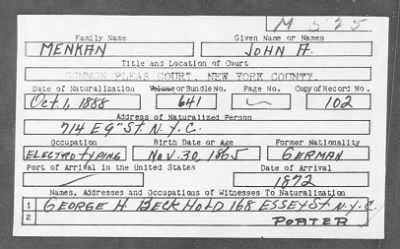 M 525
Family Name Given Name or Names
MENKAN JOHN A.
Title and Location of Court
COMMON PLEAS COURT, NEW YORK COUNTY.
Date of Naturalization Volume or Bundle No. Page No. Copy of Record No.
Oct. 1, 1888 641 102
Address of Naturalized Person
714 E 9" St. N.Y.C.
Occupation Birth Date or Age Former Nationality
ELECTROTYPING Nov. 30, 1865 GERMAN
Port of Arrival in the United States Date of Arrival
1872
Names, Addresses and Occupations of Witnesses To Naturalization
1 GEORGE H. BECKHOLD 168 ESSEX St N.Y.C.
2 PORTER